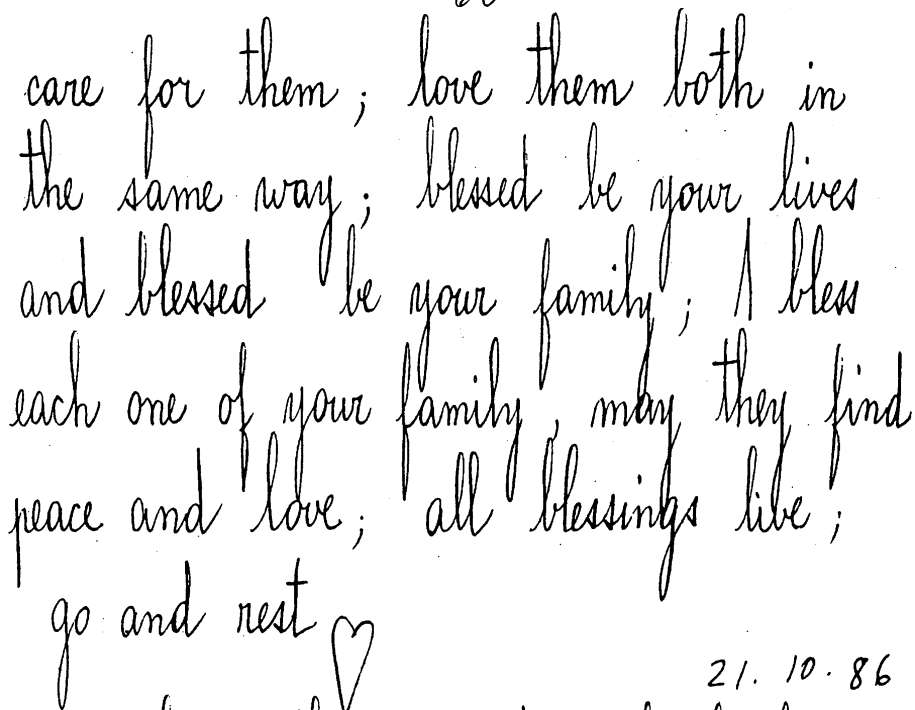 care for them; love them both in
the same way; blessed be your lives
and blessed be your family; I bless
each one of your family, may they find
peace and love; all blessings live;
go and rest ♡
21. 10. 86